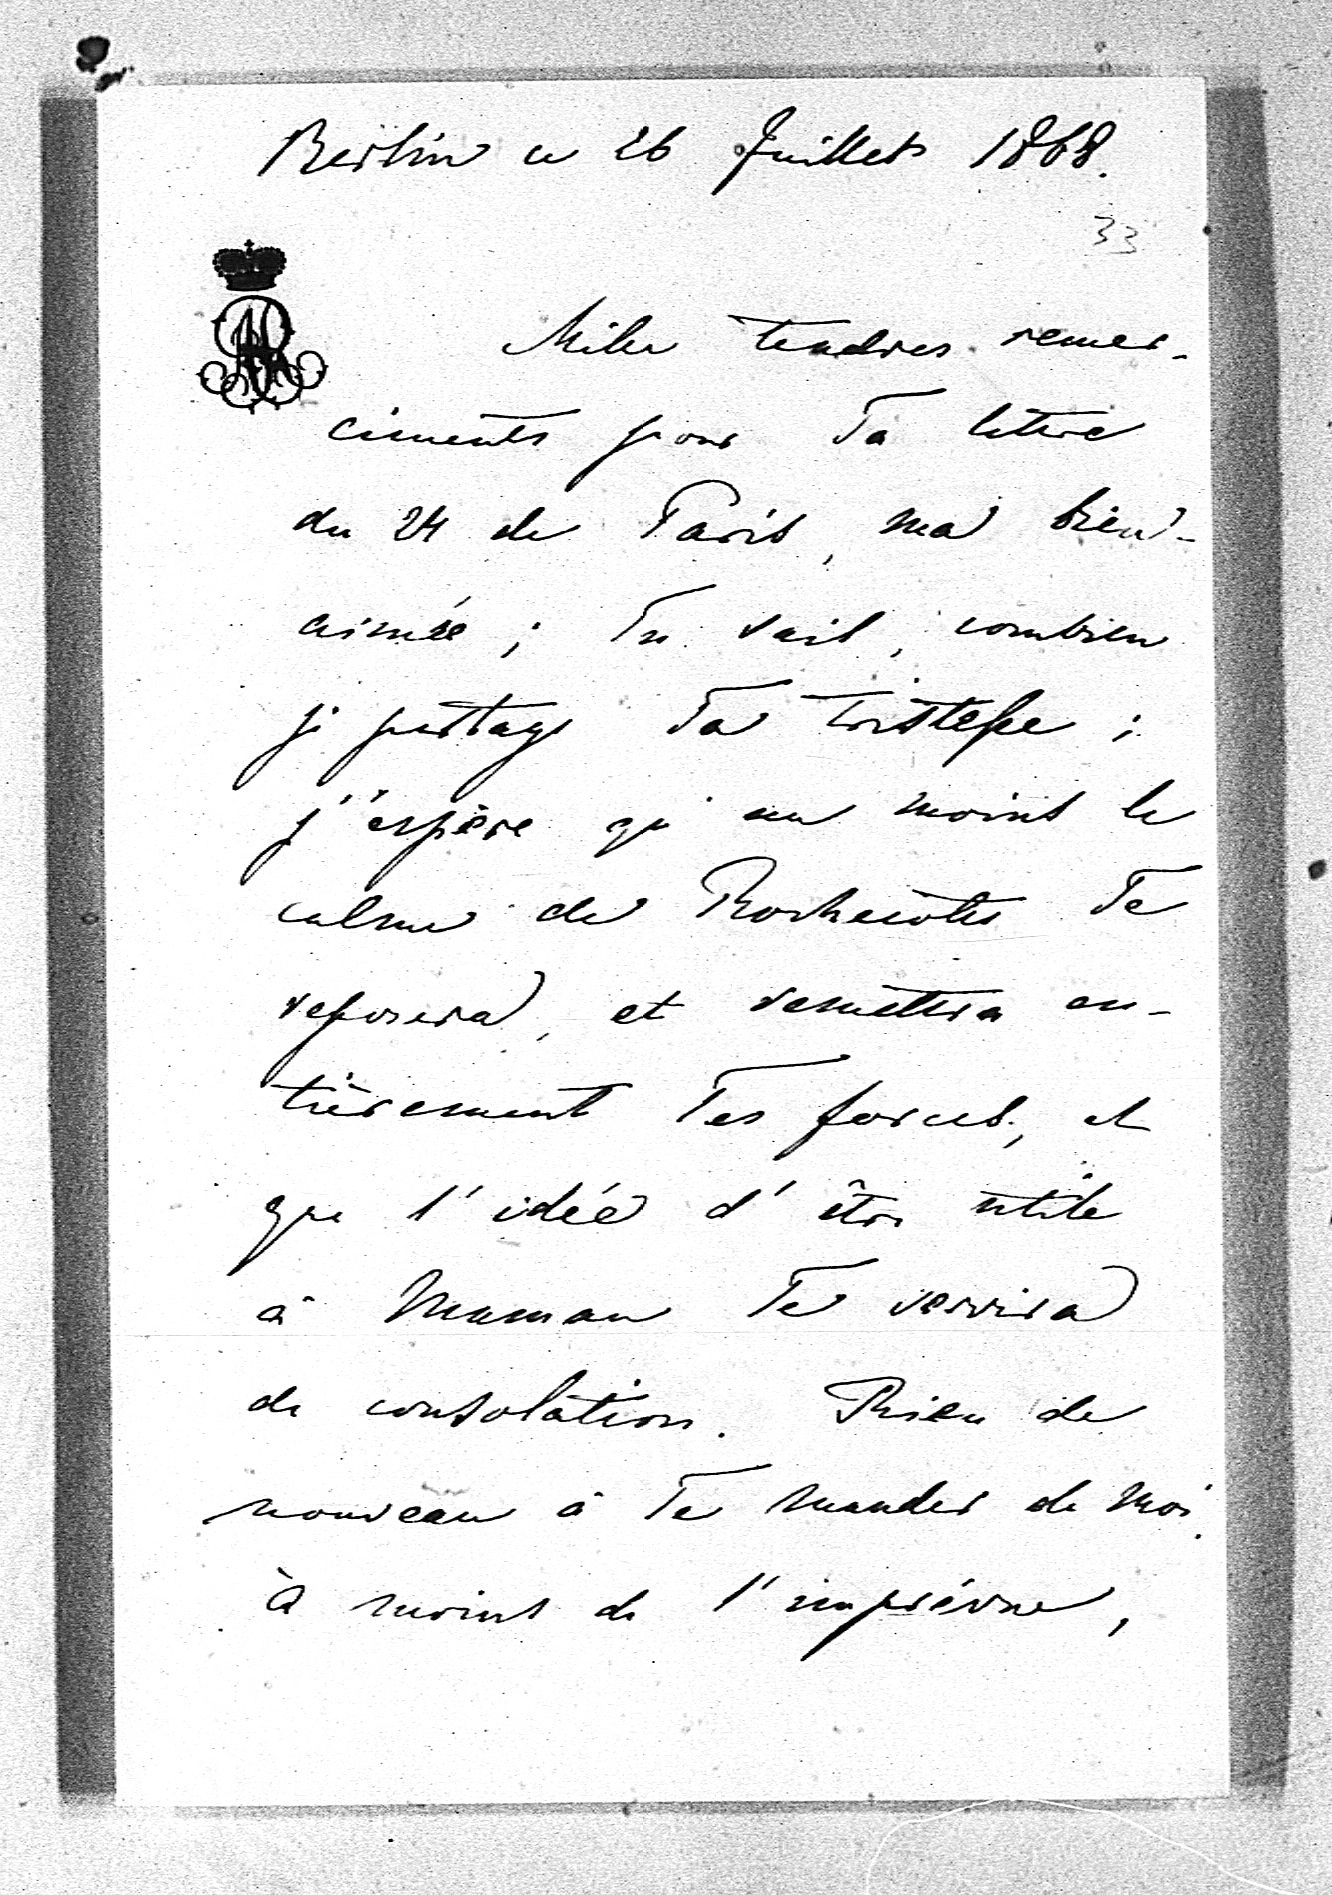 Berlin ce 26 Juillet 1868.
33
Mille tendres remer-
ciments pour Ta lettre
du 24 de Paris, ma bien-
aimée; Tu sais, combien
je partage Ta tristesse;
j'éspère qu'au moins le
calme de Rochecotte Te
reposera, et remettra en-
tièrement Tes forces, et
que l'idée d'être utile
à Maman Te servira
de consolation. Rien de
nouveau à Te mander de moi.
à moins de l'imprévue,